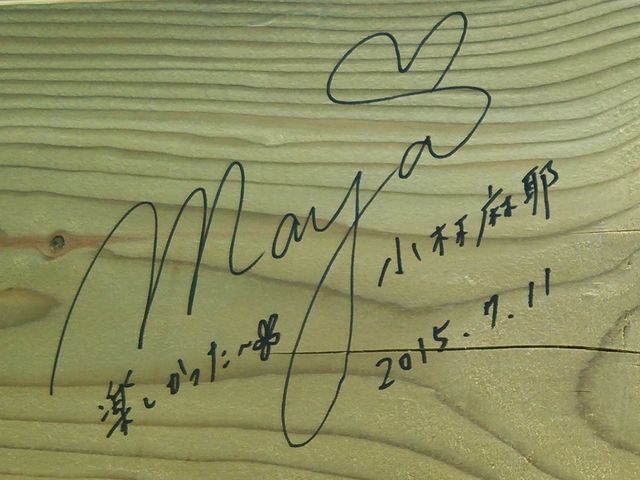 Maya
小林麻耶
2015.7.11
楽しかった〜